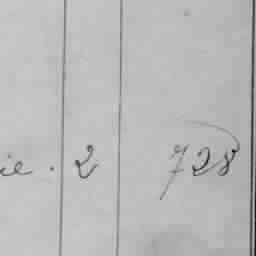 ie. 2 728